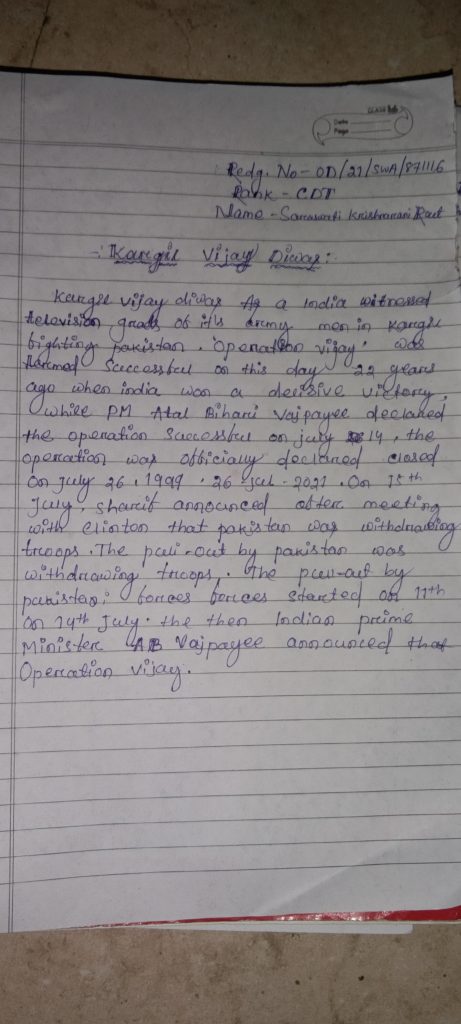 CLASS
Date
Page
Redg. No - OD/21/SWA/871116
Rank - CDT
Name - Saraswati Krishnarani Raut
-: Kargil Vijay Diwas :-
Kargil vijay diwas As a India witnessed
television grabs of it's army men in Kargil
fighting pakistan. 'Operation vijay' was
termed Successful on this day 22 years
ago when india won a decisive victory,
While PM Atal Bihari Vajpayee declared
the operation Successful on july 14, the
operation was officially declared closed
on july 26, 1999. 26 Jul. 2021. On 15th
July, sharif announced after meeting
with Clinton that pakistan was withdrawing
troops. The pull-out by pakistan was
withdrawing troops. The pull-out by
pakistani forces forces started on 11th
on 14th July. the then Indian prime
Minister AB Vajpayee announced that
Operation vijay.